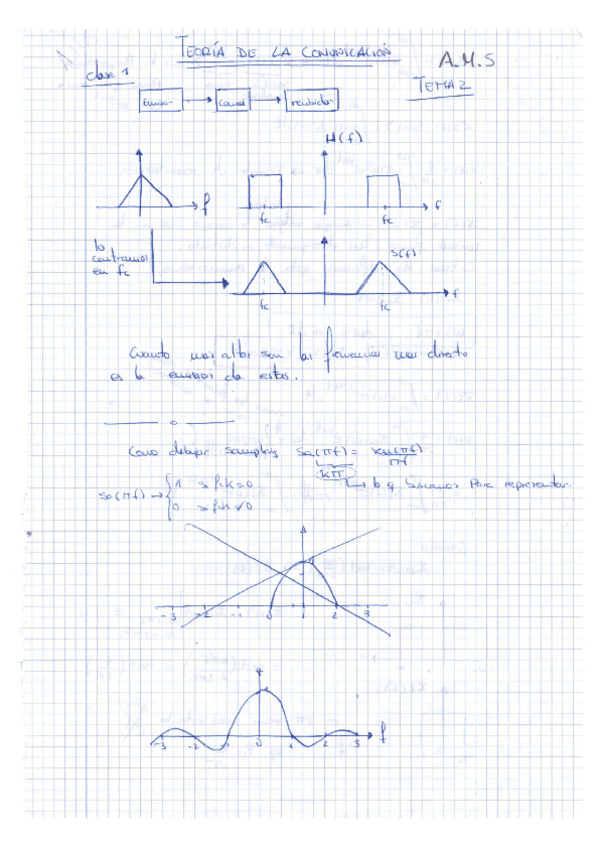 TEORÍA DE LA COMUNICACIÓN
A.M.S
clase 1
TEMA 2
Emisor
Canal
receptor
H(f)
f
fc
fc
f
lo
centramos
en fc
S(f)
fc
fc
f
Cuanto mas altas son las frecuencias mas directo
es la emision de estas.
Como dibujar sampling Sa(πf) = sen(πf)/πf
kπ
lo q buscamos Para representar.
Sa(πf) → { 1 si f=k=0
0 si f=k≠0
1
-3 -2 -1 0 1 2 3
1
-3 -2 -1 0 1 2 3 f